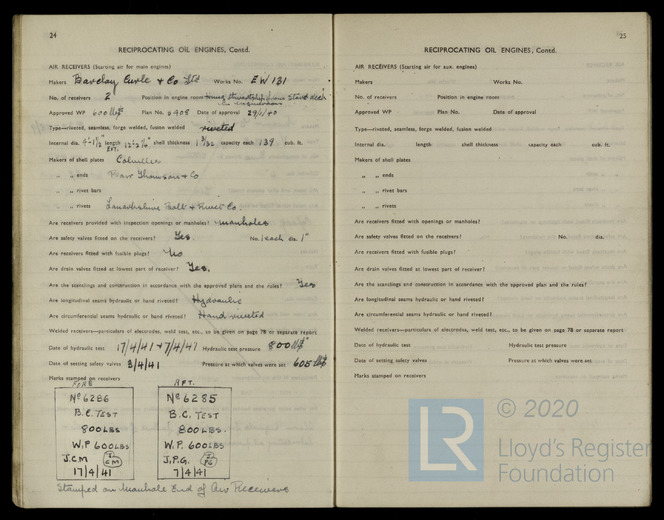 24
RECIPROCATING OIL ENGINES, Contd.
AIR RECEIVERS (Starting air for main engines)
Makers Barclay Curle & Co Ltd Works No. EW 131
No. of receivers 2 Position in engine room
Approved WP 600 Plan No. Date of approval 29/11/40
Type—riveted, seamless, forge welded, fusion welded riveted
Internal dia. length EXT. shell thickness capacity each 139 cub. ft.
Makers of shell plates Colvilles
„ „ ends Thomson & Co
„ „ rivet bars
„ „ rivets Lanarkshire Bolt & Rivet Co.
Are receivers provided with inspection openings or manholes? manholes
Are safety valves fitted on the receivers? Yes. No. 1 each dia. 1"
Are receivers fitted with fusible plugs? No
Are drain valves fitted at lowest part of receiver? Yes.
Are the scantlings and construction in accordance with the approved plans and the rules? Yes
Are longitudinal seams hydraulic or hand riveted? Hydraulic
Are circumferential seams hydraulic or hand riveted? Hand riveted
Welded receivers—particulars of electrodes, weld test, etc., to be given on page 78 or separate report
Date of hydraulic test 17/4/41 & 7/4/41 Hydraulic test pressure 800
Date of setting safety valves 3/4/41 Pressure at which valves were set 605
Marks stamped on receivers
FOR'D
No 6286
B.C. TEST
800 LBS
W.P 600 LBS
J.C.M
17/4/41
AFT.
No 6285
B.C. TEST
800 LBS.
W.P. 600 LBS
J.P.G.
7/4/41
Stamped on Manhole End of Air Receivers
25
RECIPROCATING OIL ENGINES, Contd.
AIR RECEIVERS (Starting air for aux. engines)
Makers Works No.
No. of receivers Position in engine room
Approved WP Plan No. Date of approval
Type—riveted, seamless, forge welded, fusion welded
Internal dia. length shell thickness capacity each cub. ft.
Makers of shell plates
„ „ ends
„ „ rivet bars
„ „ rivets
Are receivers fitted with openings or manholes?
Are safety valves fitted on the receivers? No. dia.
Are receivers fitted with fusible plugs?
Are drain valves fitted at lowest part of receiver?
Are the scantlings and construction in accordance with the approved plan and the rules?
Are longitudinal seams hydraulic or hand riveted?
Are circumferential seams hydraulic or hand riveted?
Welded receivers—particulars of electrodes, weld test, etc., to be given on page 78 or separate report
Date of hydraulic test Hydraulic test pressure
Date of setting safety valves Pressure at which valves were set
Marks stamped on receivers
LR
© 2020
Lloyd's Register
Foundation